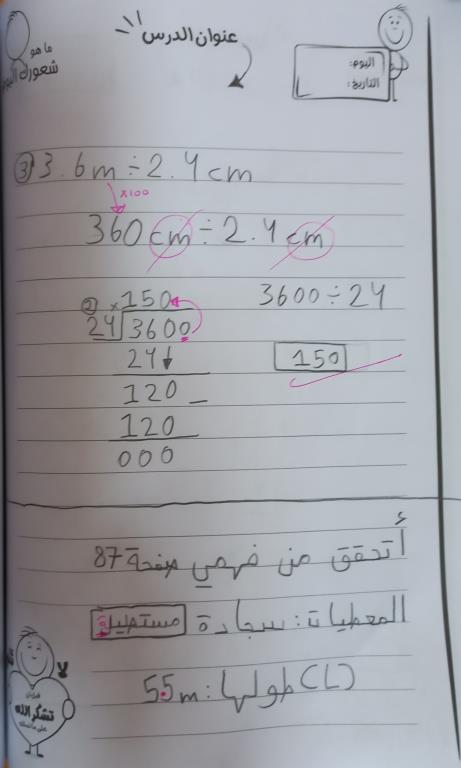 عنوان الدرس
ما هو
شعورك اليوم
اليوم:
التاريخ:
③ 3.6m ÷ 2.4cm
×100
360cm ÷ 2.4cm
② × 150
3600 ÷ 24
24 3600
24
150
120
120
000
أتحقق من فهمي صفحة 87
المعطيات: سجادة مستطيلة
(L) طولها: 5.5m
تشكر الله